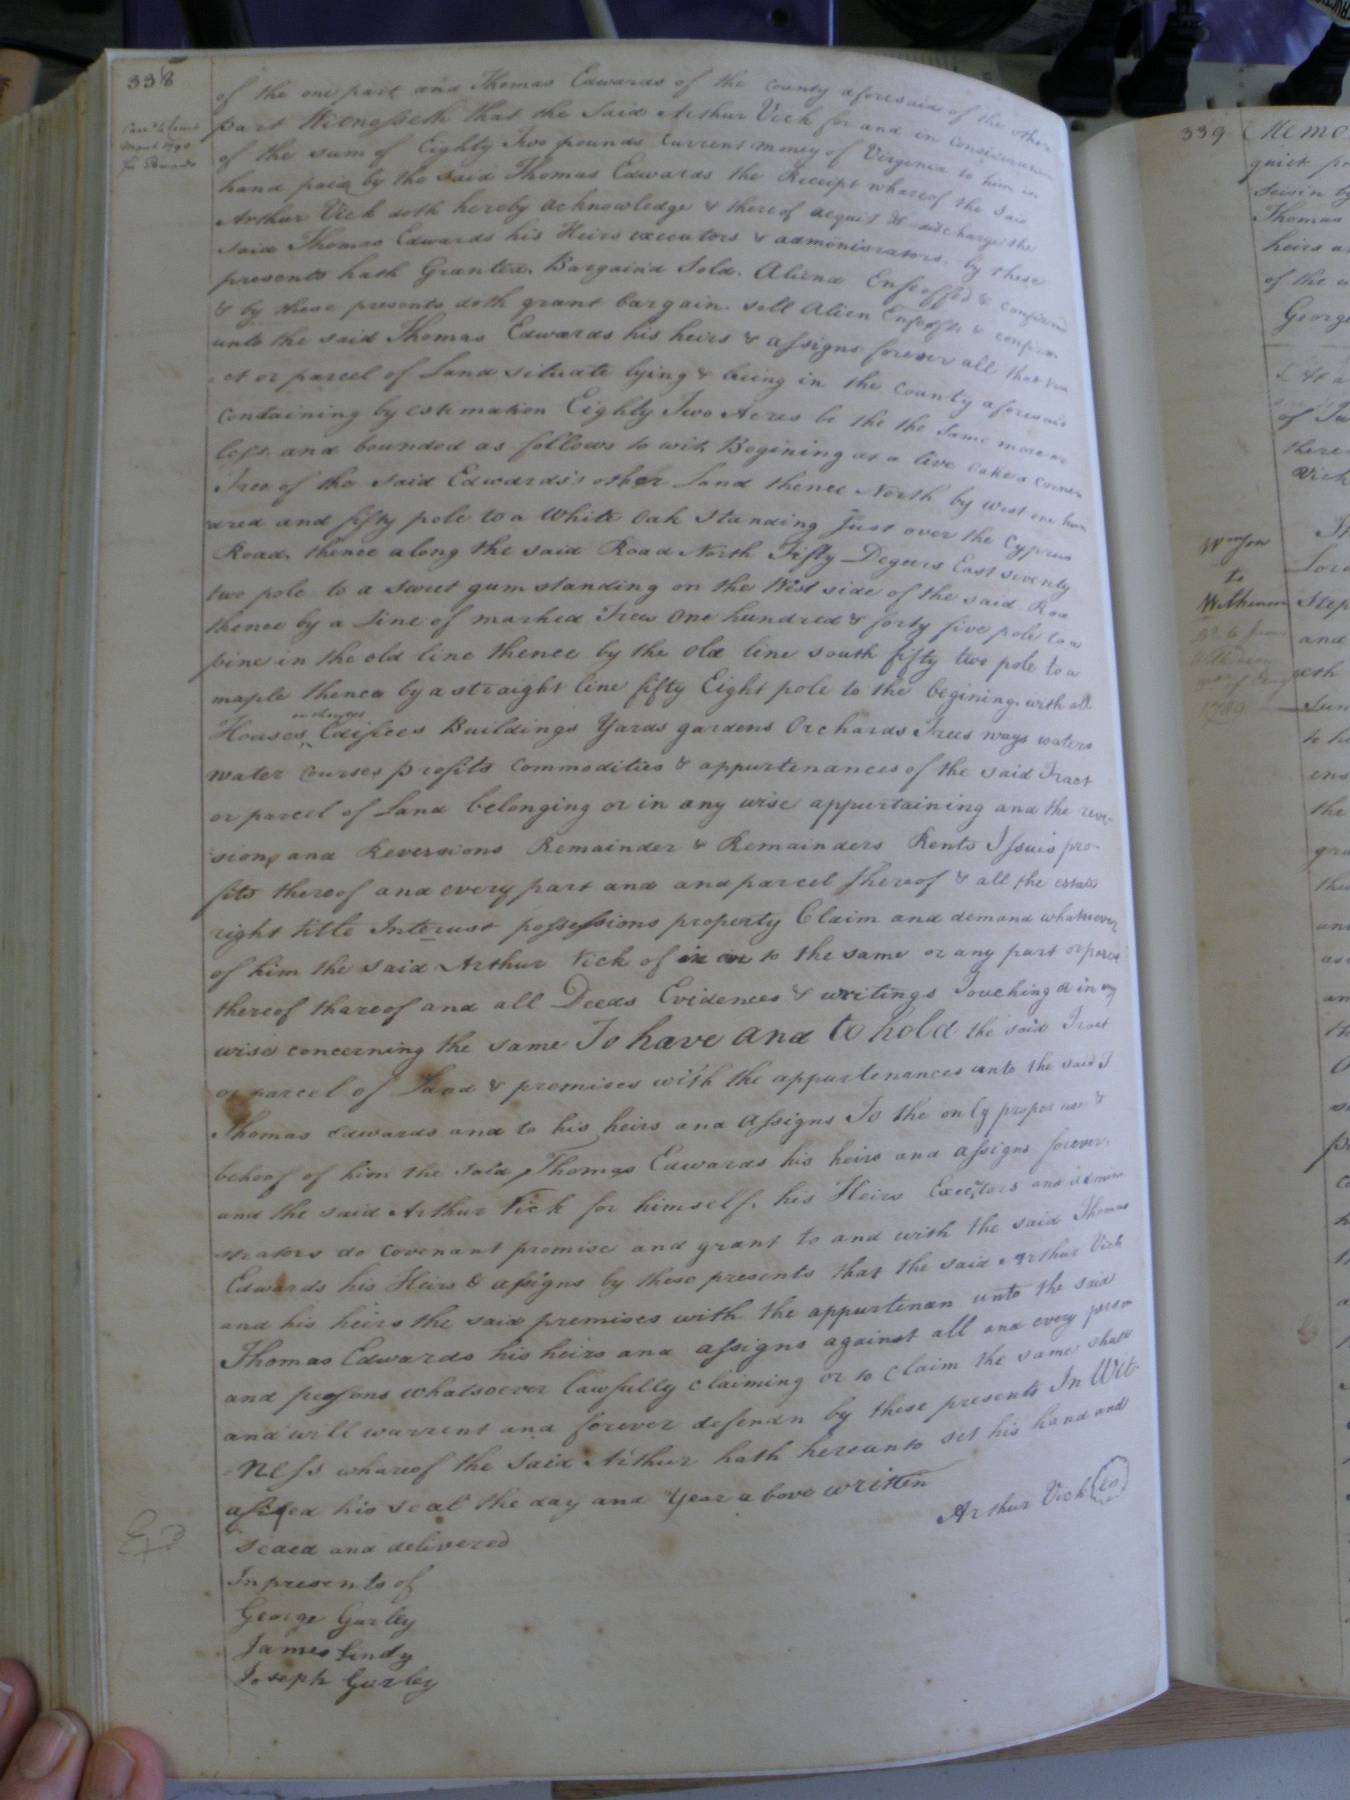 338
of the one part and Thomas Edwards of the County aforesaid of the other
part Witnesseth that the Said Arthur Vick for and in Consideration
of the sum of Eighty Two pounds Current money of Virginia to him in
hand paid by the Said Thomas Edwards the Receipt whareof the Said
Arthur Vick doth hereby acknowledge & thereof acquit & discharge the
Said Thomas Edwards his Heirs executors & administrators. by these
presents hath Granted. Bargaind Sold. Aliend Enfeoffd & Confirmd
& by these presents doth grant bargain. sell Alien Enfeoff. & confirm
unto the said Thomas Edwards his heirs & assigns forever all that tra
ct or parcel of Land situate lying & being in the County aforesaid
Containing by estimation Eighty Two Acres be the the Same more or
less. and bounded as follows to wit, Begining at a live Oake a Corner
Tree of the said Edwards's other Land thence North by west one hun
dred and fifty pole to a White Oak Standing Just over the Cyprus
Road. thence along the said Road North Fifty Degeers East seventy
two pole to a sweet gum standing on the West side of the said Roa
thence by a Line of marked Trees One hundred & forty five pole to a
pine in the old line thence by the Old line south fifty two pole to a
maple thence by a straight line fifty Eight pole to the begining. with all
Houses Edifices Buildings Yards gardens Orchards Trees ways waters
water Courses profits Commodities & appurtenances of the said Tract
or parcel of Land belonging or in any wise appurtaining and the rever-
sion, and Reversions Remainder & Remainders Rents Issuis pro-
fits thereof and every part and and parcel thereof & all the estate
right title Interust possessions property Claim and demand whatsoever
of him the said Arthur Vick of in to the same or any part or parcel
thereof thareof and all Deeds Evidences & writings Touching or in any
wise concerning the same To have and to hold the said Tract
or parcel of Land & promises with the appurtenances unto the said
Thomas Edwards and to his heirs and Assigns To the only proper use &
behoof of him the Said Thomas Edwards his heirs and assigns forever.
and the said Arthur Vick for himself, his Heirs Executors and Admini
strators do Covenant promise and grant to and with the said Thomas
Edwards his Heirs & assigns by these presents that the said Arthur Vick
and his heirs the said premises with the appurtenan unto the said
Thomas Edwards his heirs and assigns against all and every person
and persons whatsoever lawfully claiming or to Claim the same shall
and will warrent and forever defendn by these presents In Wit-
-Ness whareof the Said Arthur hath hereunto set his hand and
affixed his seal the day and Year above written
Arthur Vick
Sealed and delivered
In presents of
George Gurley
James
Joseph Gurley
339 Memo
quiet po
Seisin by
Thomas
heirs a
of the
George
there
Vick
to
Step
and
Jun
ens
the